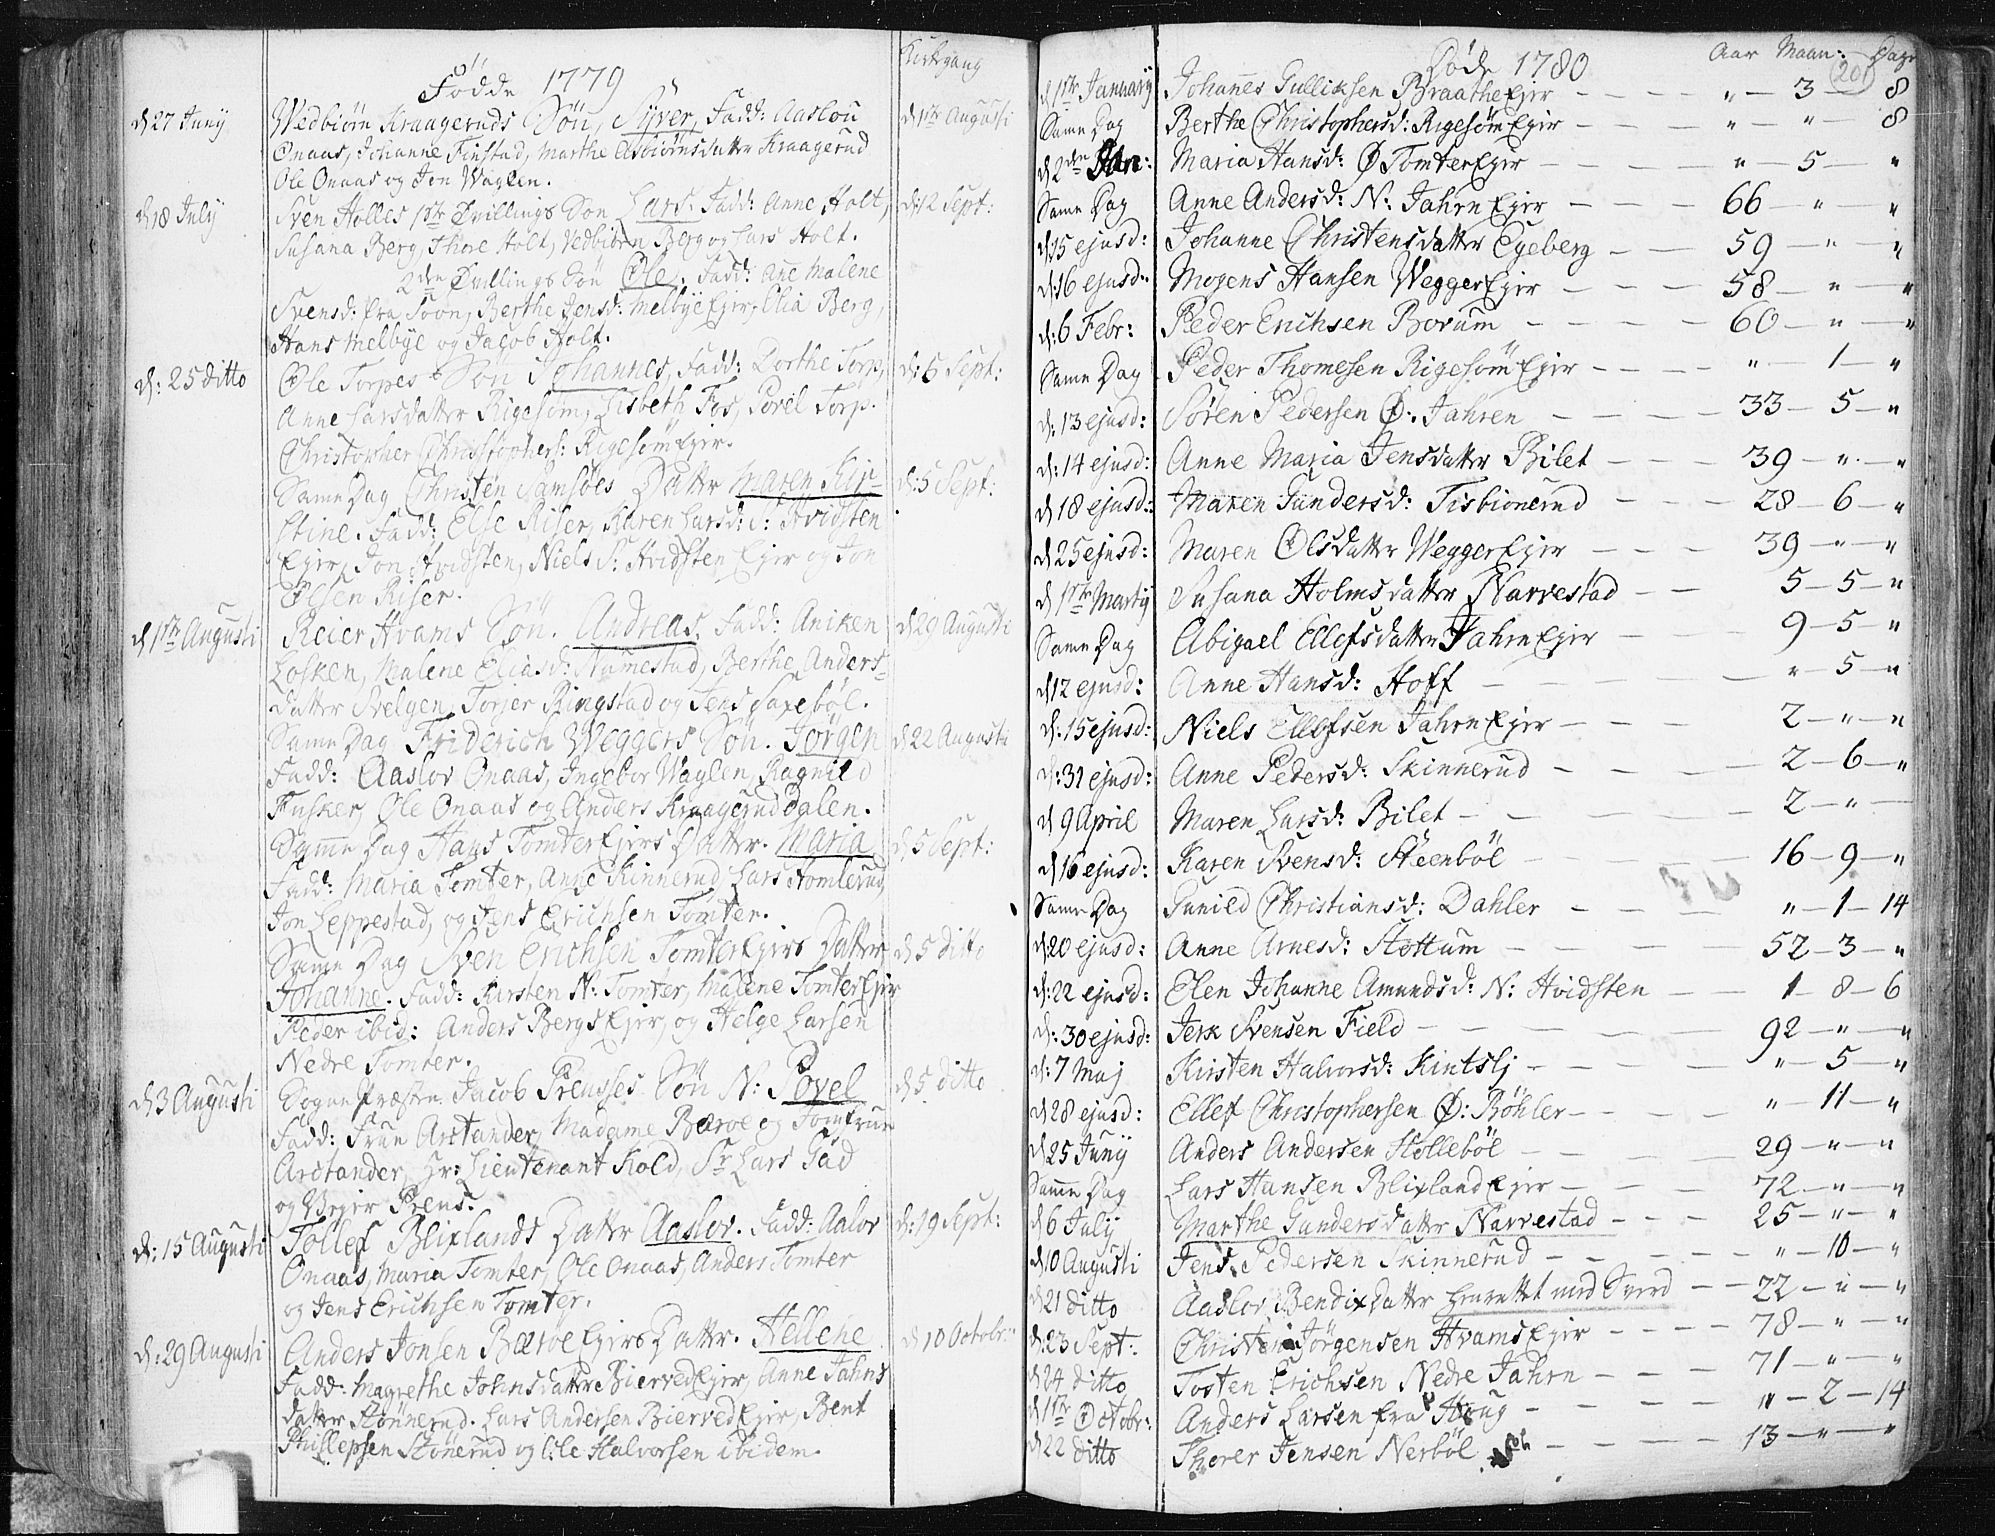 Fødde 1779
Kirkgang
d 27 Juny
Wedbiørn Kraageruds Sön, Syver, Fadd: Aaslou
d 1ste Augusti
Onaas, Johanne Finstad, Marthe Asbiörnsdatter Kraagerud
Ole Onaas og Jon Waglen.
d 18 July
Sven Holtes 1ste Tvillings Sön Lars. Fadd: Anne Holt,
d: 12 Sept:
Susana Berg, Thore Holt, Vedbiörn Berg og Lars Holt.
2den Tvillings Sön Ole. Fadd: Ane Malene
Svensd: fra Soon, Berthe Jensd: Melbye Eier, Elia Berg,
Hans Melbye og Jacob Holt.
d: 25 ditto
Ole Torpes Sön Johannes, Fadd: Dorthe Torp,
d: 5 Sept:
Anne Larsdatter Rigesøm, Lisbeth Fos, Povel Torp.
Christopher Christophers: Rigesøm Eier.
Same Dag Christen Samsöes Datter Maren Kir-
d: 5 Sept:
stine. Fadd: Else Riser, Karen Larsd: S: Hvidsten
Eier, Jon Hvidsten, Niels S: Hvidsten Eier og Jon
Olsen Riser.
d 1ste Augusti
Reier Hvams Sön. Andreas, Fadd: Aniken
d 29 Augusti
Losken, Malene Eliasd: Aamestad, Berthe Anders-
datter Svelgen, Torjer Ringstad og Jens Saxeböl.
Same Dag Friderich Weggers Sön. Jörgen
d 22 Augusti
Fadd: Aaslov Onaas, Ingebor Waglen, Ragnild
Fusker, Ole Onaas og Anders Kraagerud Dalen.
Same Dag Hans Tomter Eiers Datter. Maria
d 5 Sept:
Fadd: Maria Tomter, Anne Kinnerud, Lars Homlerud,
Jon Leppestad, og Jens Erichsen Tomter.
Same Dag Sven Erichsen Tomter Eiers Datter
d 5 ditto
Johanne. Fadd: Kirsten N: Tomter, Malene Tomter Eier
Peder ibid: Anders Bergs Eier, og Helge Larsen
Nedre Tomter.
d 3 Augusti
Sogne Præsten Jacob Prensses Sön N: Povel
d 5 ditto
Fadd: Frue Arstander, Madame Bærøe og Jomfrue
Arstander, Hr: Lieutenant Kold, Sr Lars Gad
og Prens.
d: 15 Augusti
Tollef Blixlands Datter Aaslov. Fadd: Aalov
d: 19 Sept:
Onaas, Maria Tomter, Ole Onaas, Anders Tomter
og Jens Erichsen Tomter.
d: 29 Augusti
Anders Jonsen Bærøe Eiers Datter. Hellene
d 10 Octobr:
Fadd: Magrethe Johnsdatter Bierved Eier, Anne Jahns
datter Stönerud. Lars Andersen Bierved Eier, Bent
Phillepsen Stönerud og Ole Halvorsen ibidem.
Døde 1780
Aar Maan: Dage
201
d 1ste January Johannes Gulliksen Braathe Eier — " — 3 — 8
Same Dag Berthe Christophersd: Rigesøm Eier — " — " — 8
d 2den Jan: Maria Hansd: Ø Tomter Eier — " — 5 — "
Same Dag Anne Andersd: N: Jahren Eier — 66 — " — "
d 15 ejusd: Johanne Christensdatter Egeberg — 59 — " — "
d: 16 ejusd: Mogens Hansen Wegger Eier — 58 — " — "
d: 6 Febr: Peder Erichsen Borum — 60 — " — "
Same Dag Peder Thomesen Rigesøm Eier — " — 1 — "
d: 13 ejusd: Sören Pedersen Ø: Jahren — 33 — 5 — "
d: 14 ejusd: Anne Maria Jensdatter Bilet — 39 — " — "
d 18 ejusd: Maren Gundersd: Tisbionerud — 28 — 6 — "
d 25 ejusd: Maren Olsdatter Wegger Eier — 39 — " — "
d 1ste Marty Susana Holmsdatter Narvestad — 5 — 5 — "
Same Dag Abigael Ellefsdatter Jahrn Eier — 9 — 5 — "
d 12 ejusd: Anne Hansd: Hoff — " — 5 — "
d: 15 ejusd: Niels Ellefsen Jahrn Eier — 2 — " — "
d: 31 ejusd: Anne Pedersd: Skinnerud — 2 — 6 — "
d 9 April Maren Larsd: Bilet — 2 — " —
d 16 ejusd: Karen Svensd: Steenböl — 16 — 9 — "
Same Dag Gunild Christiansd: Dahler — " — 1 — 14
d: 20 ejusd: Anne Arnesd: Stottum — 52 — 3 — "
d: 22 ejusd: Elen Johanne Amundsd: N: Hvidsten — 1 — 8 — 6
d: 30 ejusd: Jerk Svensen Field — 92 — " — "
d: 7 Maj Kirsten Halvorsd: Kintslj — " — 5 — "
d 28 ejusd: Ellef Christophersen Ø: Röhler — " — 11 — "
d 25 Juny Anders Andersen Hollebøl — 29 — " — "
Same Dag Lars Hansen Blixland Eier — 72 — " — "
d 6 July Marthe Gundersdatter Narvestad — 25 — " — "
d 10 Augusti Jens Pedersen Skinnerud — " — 10 — "
d 21 ditto Aaslov Bendixdatter henrettet med Sverd — 22 — " — "
d: 23 Sept: Christen Jörgensen Hvams Eier — 78 — " — "
d 24 ditto Tosten Erichsen Nedre Jahrn — 71 — " — "
d 1ste Octobr: Anders Larsen fra Houg — " — 2 — 14
d 22 ditto Thorer Jensen Nerböl — 13 — " — "